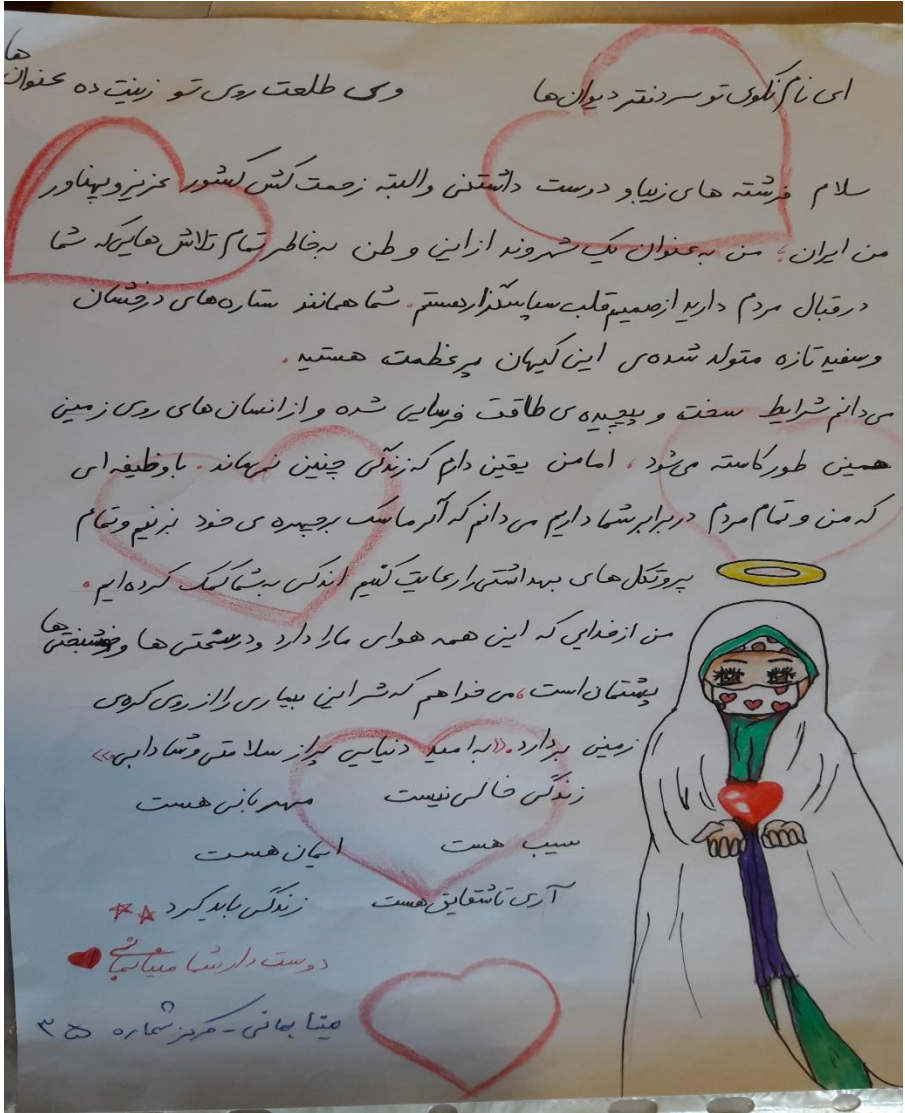 ای نام نکوی تو سر دفتر دیوان ها وی طلعت روی تو زینت ده عنوان ها
سلام فرشته های زیبا و دوست داشتنی والبته زحمت کش کشور عزیز و پهناور
من ایران؛ من به عنوان یک شهروند از این وطن به خاطر تمام تلاش هایی که شما
در قبال مردم دارید از صمیم قلب سپاسگذار هستم. شما همانند ستاره های درخشان
و سفید تازه متولد شده ی این کیهان پر عظمت هستید.
می دانم شرایط سخت و پیچیده ی طاقت فرسایی شده و از انسان های روی زمین
همین طور کاسته می شود، اما من یقین دارم که زندگی چنین نمی ماند. با وظیفه ای
که من و تمام مردم در برابر شما داریم می دانم که اگر ماسک بر چهره ی خود بزنیم و تمام
پروتکل های بهداشتی را رعایت کنیم اندکی به شما کمک کرده ایم.
من از خدایی که این همه هوای ما را دارد و در سختی ها و خوشبختی ها
پشتمان است، می خواهم که شر این بیماری را از روی کره ی
زمین بر دارد. «به امید دنیایی پر از سلامتی و شادابی.»
زندگی خالی نیست مهربانی هست
سیب هست ایمان هست
آری تا شقایق هست زندگی باید کرد
دوست دار شما
مینا یمانی - مرکز شماره ۳۵